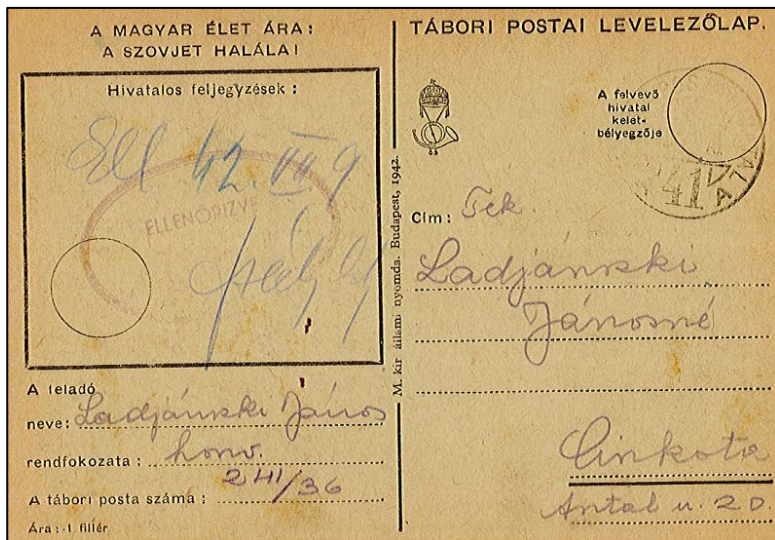 A MAGYAR ÉLET ÁRA:
A SZOVJET HALÁLA!
Hivatalos feljegyzések :
Ell 42. VII 9
ELLENŐRIZVE
A feladó
neve: Ladjánszki János
rendfokozata : honv.
A tábori posta száma : 241/36
Ára : 1 fillér
M. kir állami nyomda. Budapest, 1942.
TÁBORI POSTAI LEVELEZŐLAP.
A felvevő
hivatal
kelet-
bélyegzője
41
Cím : Tek.
Ladjánszki
Jánosné
Cinkota
Antal u. 20.